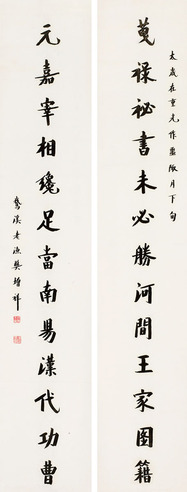 太歲在重光作噩陬月下旬
蒐祿祕書未必勝河間王家圖籍
元嘉宰相纔足當南昜漢代功曹
樊增祥